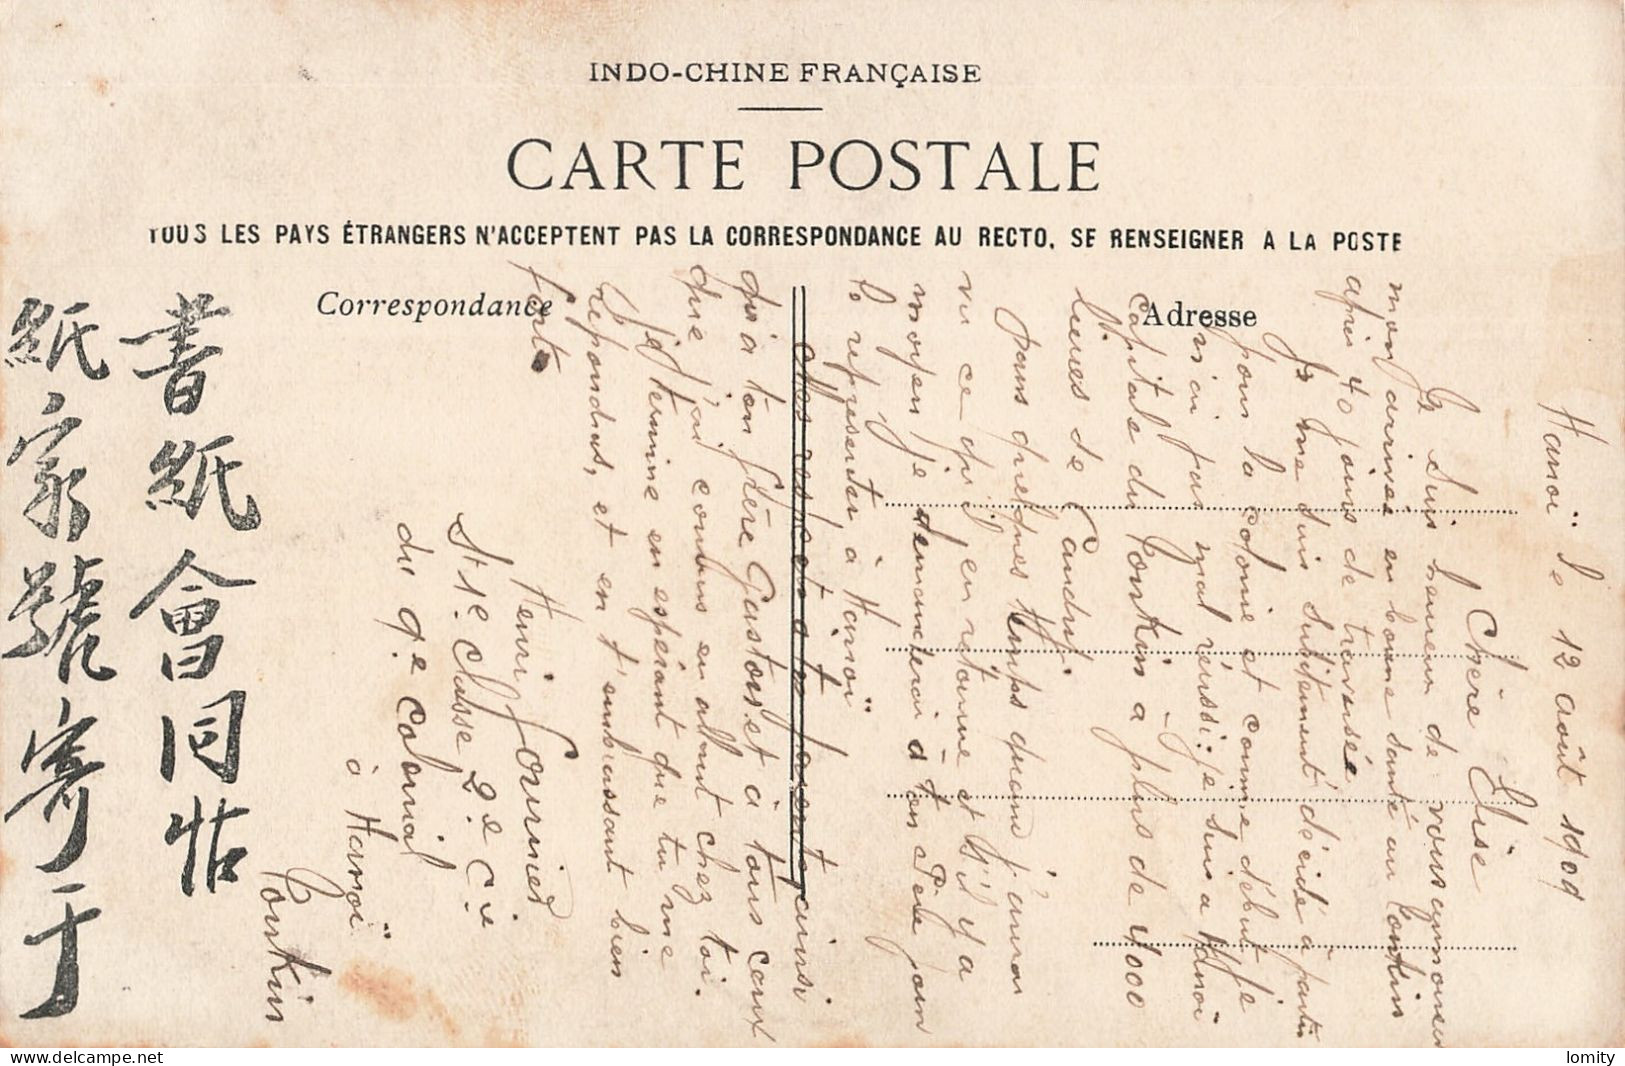 INDO-CHINE FRANÇAISE
CARTE POSTALE
TOUS LES PAYS ÉTRANGERS N'ACCEPTENT PAS LA CORRESPONDANCE AU RECTO, SE RENSEIGNER A LA POSTE
Correspondance
Adresse
書紙會同
紙家號寄于
Hanoï le 12 août 1909
Chère Elise
Je suis heureux de vous annoncer
mon arrivée en bonne santé au Tonkin
après 40 jours de traversée
Je me suis subitement décidé à partir
pour la colonie et comme début je
n'ai pas mal réussi: je suis a Hanoï
capitale du Tonkin à plus de 4000
lieues de
dans quelques temps quand j'aurai
vu ce qu'il en retourne et s'il y a
moyen je demanderai à ton Père pour
le représenter à Hanoï
Mes respects à tes parents ainsi
qu'à ton frère Gaston et à tous ceux
que j'ai connus en allant chez toi.
Je termine en espérant que tu me
répondras, et en t'embrassant bien
fort.
Henri Fournier
Sт 1e Classe 2e Cie
du 9e Colonial
à Hanoï
Tonkin
lomity